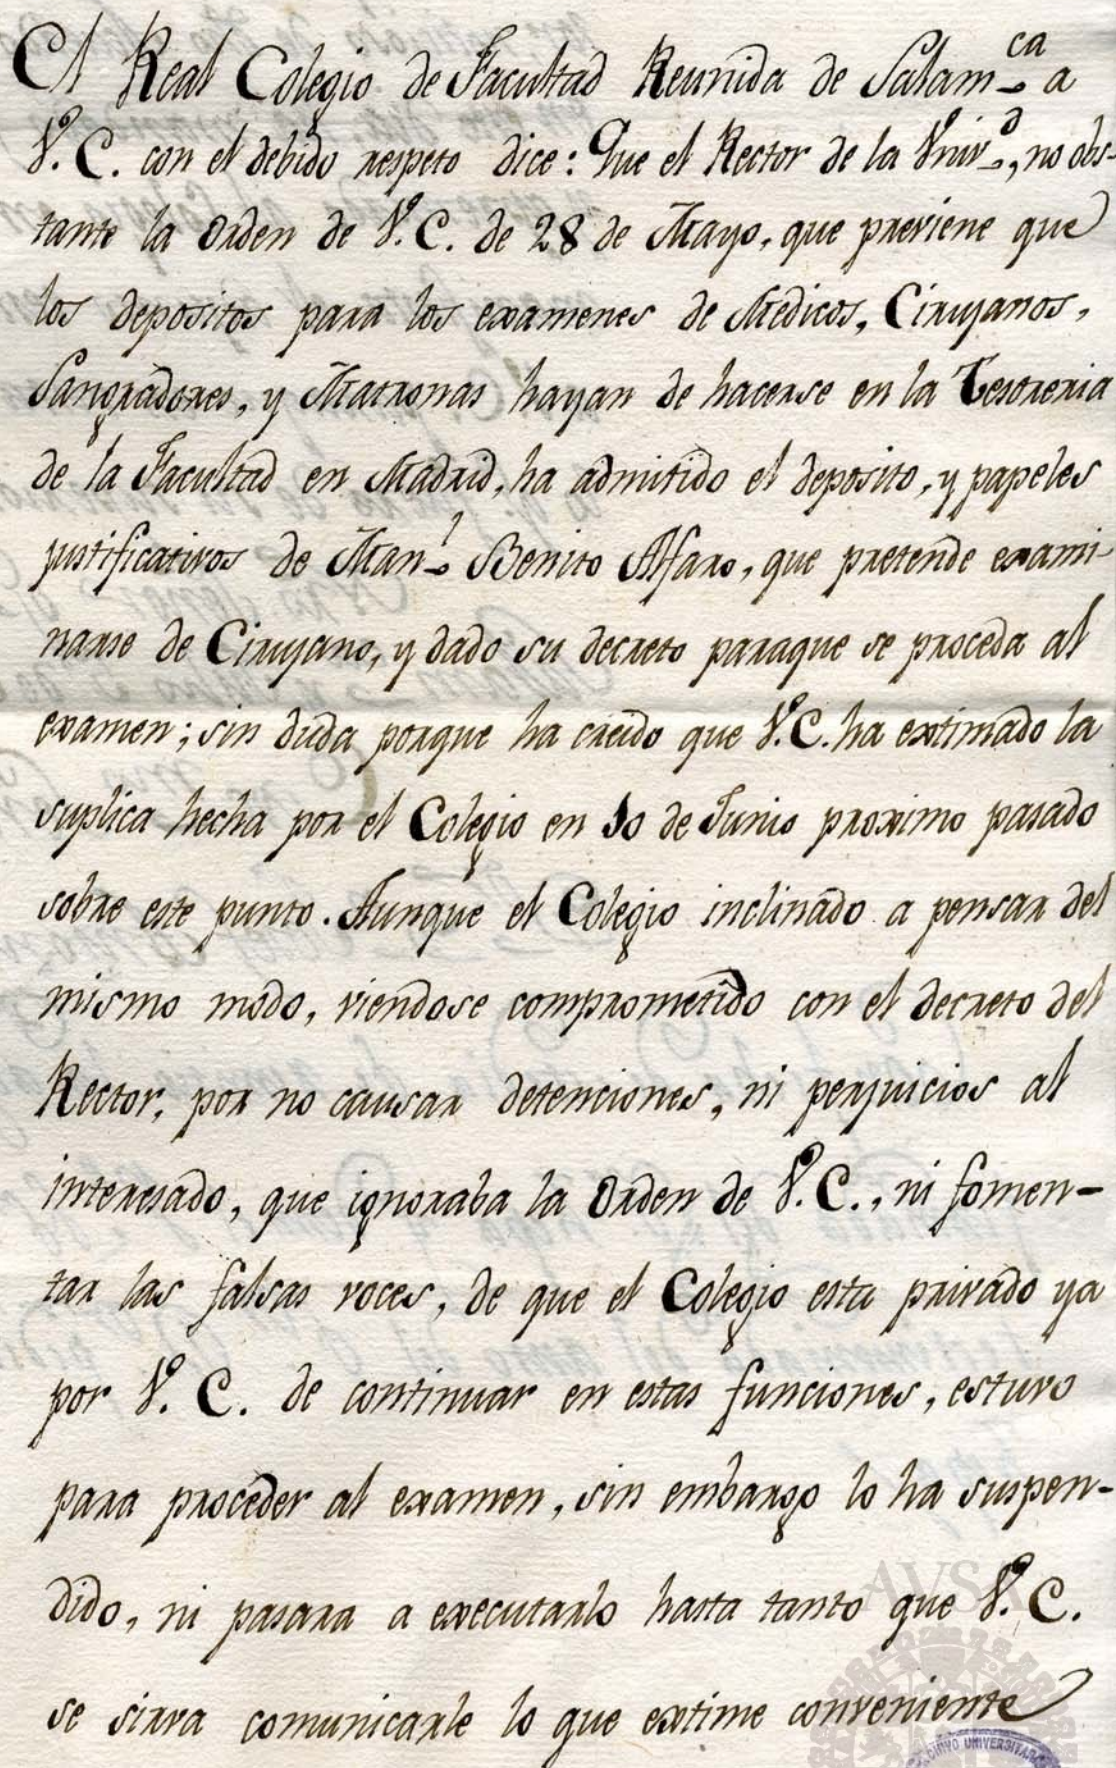 El Real Colegio de Facultad Reunida de Salam.ca a
V. E. con el debido respeto dice: Que el Rector de la Univ.d, no obs-
tante la Orden de V. E. de 28 de Mayo, que previene que
los depositos para los examenes de Medicos, Cirujanos,
Sangradores, y Matronas hayan de hacerse en la Tesoreria
de la Facultad en Madrid, ha admitido el deposito, y papeles
justificativos de Man.l Benito Alfaro, que pretende exami-
narse de Cirujano, y dado su decreto paraque se proceda al
examen; sin duda porque ha creido que V. E. ha extimado la
suplica hecha por el Colegio en 30 de Junio proximo pasado
sobre este punto. Aunque el Colegio inclinado a pensar del
mismo modo, viendose comprometido con el decreto del
Rector, por no causar detenciones, ni perjuicios al
interesado, que ignoraba la Orden de V. E., ni fomen-
tar las falsas voces, de que el Colegio esta privado ya
por V. E. de continuar en estas funciones, estuvo
para proceder al examen, sin embargo lo ha suspen-
dido, ni pasara a executarlo hasta tanto que V. E.
se sirva comunicarle lo que extime conveniente
AVSA
ARCHIVO UNIVERSITARIO